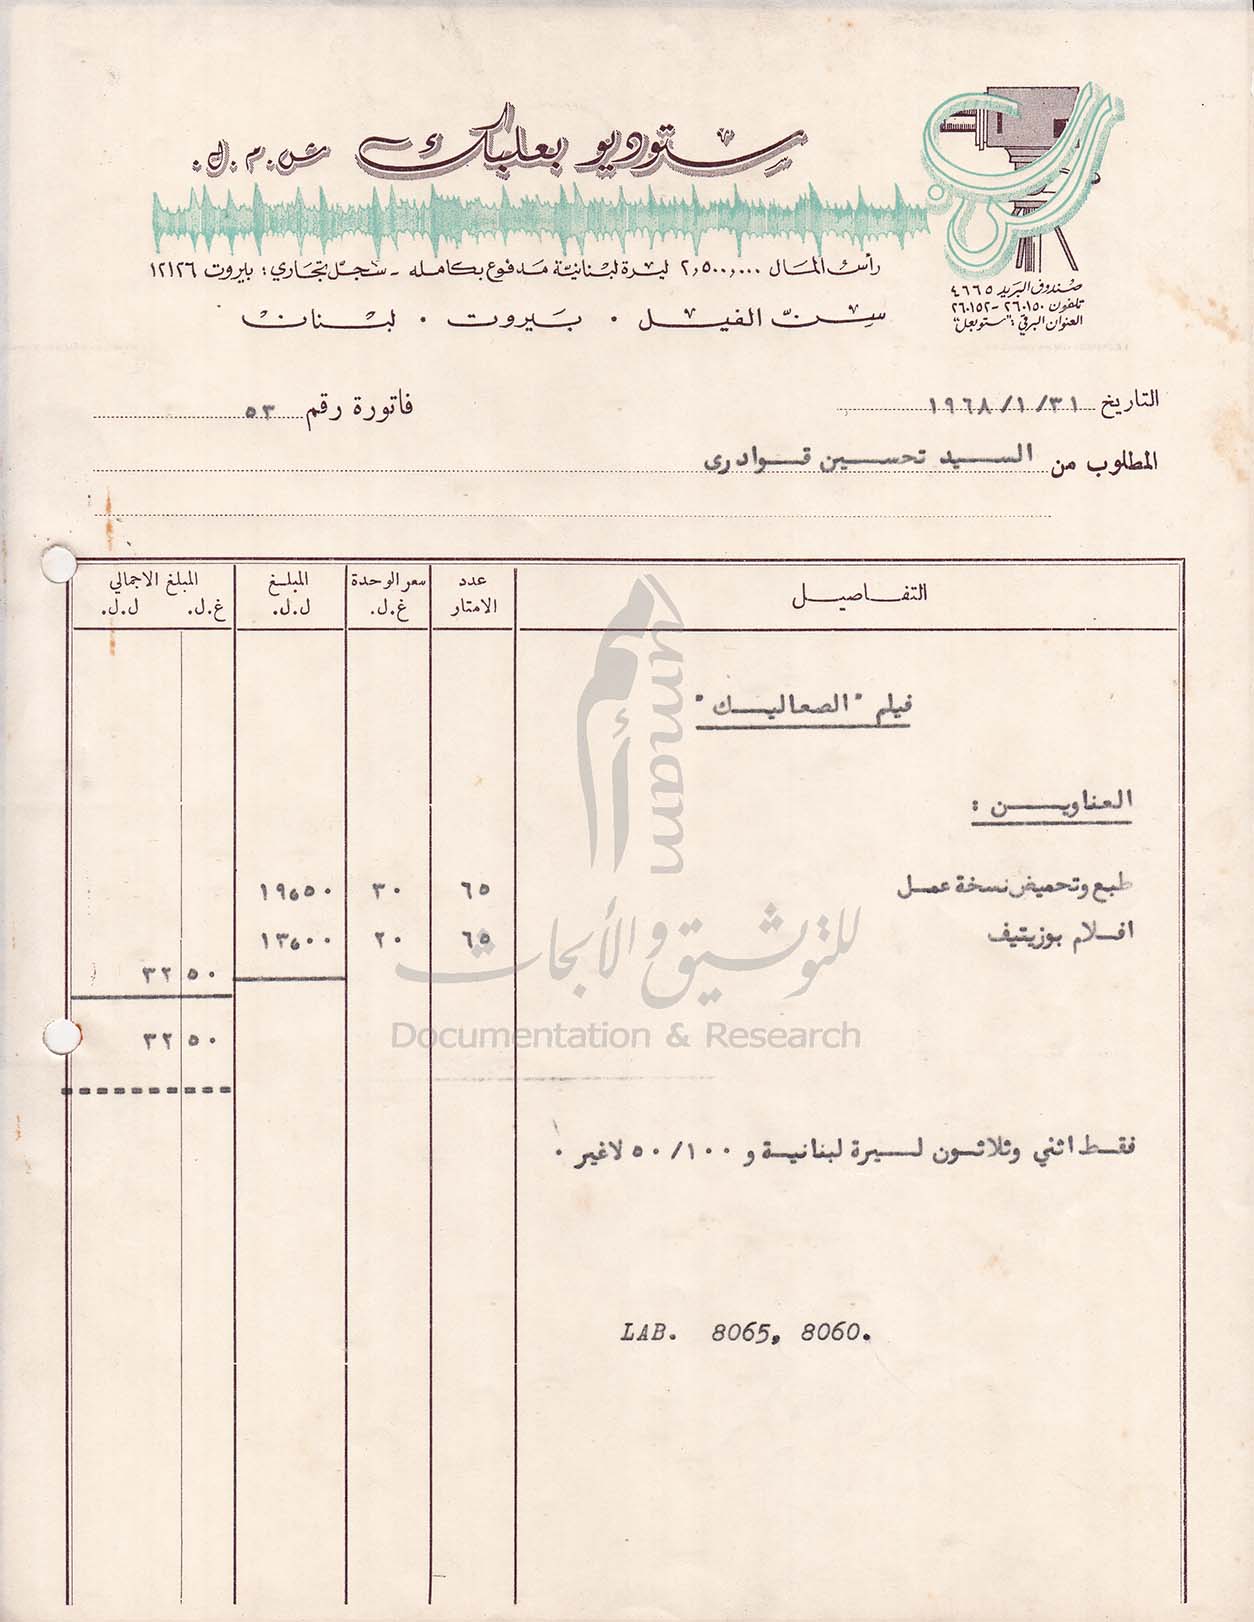 ستوديو بعلبك ش.م.ل.
رأس المال ٢,٥٠٠,٠٠٠ ليرة لبنانية مدفوع بكامله - سجل تجاري: بيروت ١٢١٢٦
سن الفيل . بيروت . لبنان
صندوق البريد ٤٦٦٥
تلفون ٢٦٠١٥٠ - ٢٦٠١٥٢
العنوان البرقي: "ستوبعل"
التاريخ ٣١/١/١٩٦٨
فاتورة رقم ٥٣
المطلوب من السيد تحسين قوادرى
التفاصيل | عدد الامتار | سعر الوحدة غ.ل. | المبلغ ل.ل. | المبلغ الاجمالي غ.ل. ل.ل.
فيلم "الصعاليك"
العناوين :
طبع وتحميض نسخة عمل ٦٥ ٣٠ ١٩،٥٠
افلام بوزيتيف ٦٥ ٢٠ ١٣،٠٠
٣٢ ٥٠
٣٢ ٥٠
فقط اثني وثلاثون ليرة لبنانية و ٥٠/١٠٠ لاغير .
LAB. 8065, 8060.
أمم
umam
للتوثيق والأبحاث
Documentation & Research